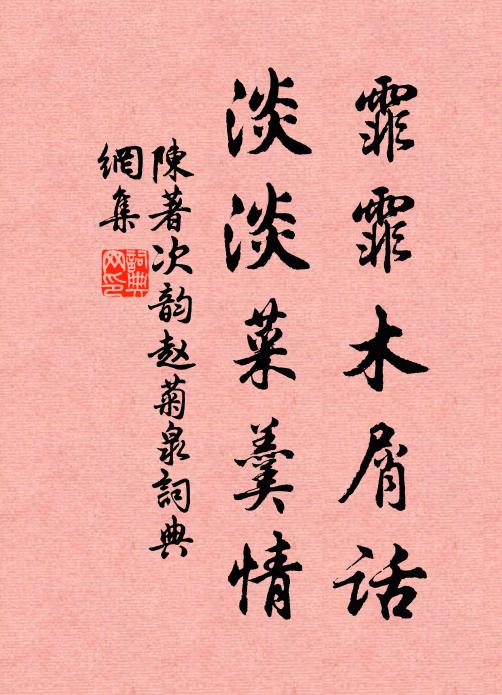 霏霏木屑话
淡淡菜羹情
陳著次韵赵菊泉詞典
網集
詞典
网印